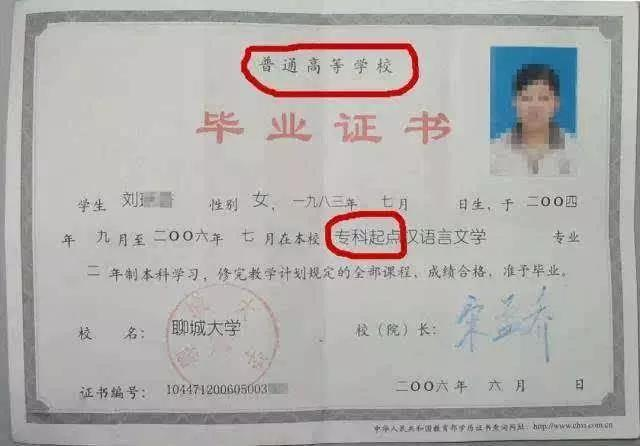 普通高等学校
毕业证书
学生 刘 性别 女，一九八三年 七月 日生，于 二〇〇四
年 九月至 二〇〇六年 七月在本校 专科起点汉语言文学 专业
二 年制本科学习，修完教学计划规定的全部课程，成绩合格，准予毕业。
校 名： 聊城大学 校（院）长： 宋益乔
证书编号： 104471200605003 二〇〇六年 六月 日
中华人民共和国教育部学历证书查询网址：http://www.chsi.com.cn